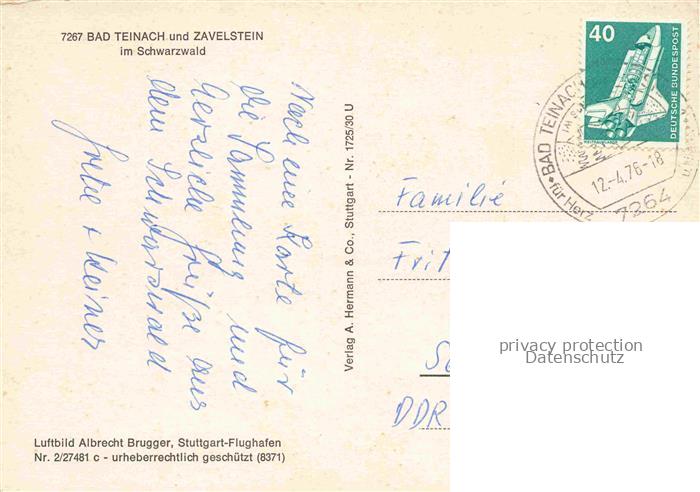 7267 BAD TEINACH und ZAVELSTEIN
im Schwarzwald
Noch eine Karte für
die Sammlung und
herzliche Grüße aus
dem Schwarzwald
Gretel + Heiner
Luftbild Albrecht Brugger, Stuttgart-Flughafen
Nr. 2/27481 c - urheberrechtlich geschützt (8371)
Verlag A. Hermann & Co., Stuttgart - Nr. 1725/30 U
40
DEUTSCHE BUNDESPOST
BAD TEINACH
12.-4.76-18
für Herz
7264
Familie
Frit
DDR
privacy protection
Datenschutz